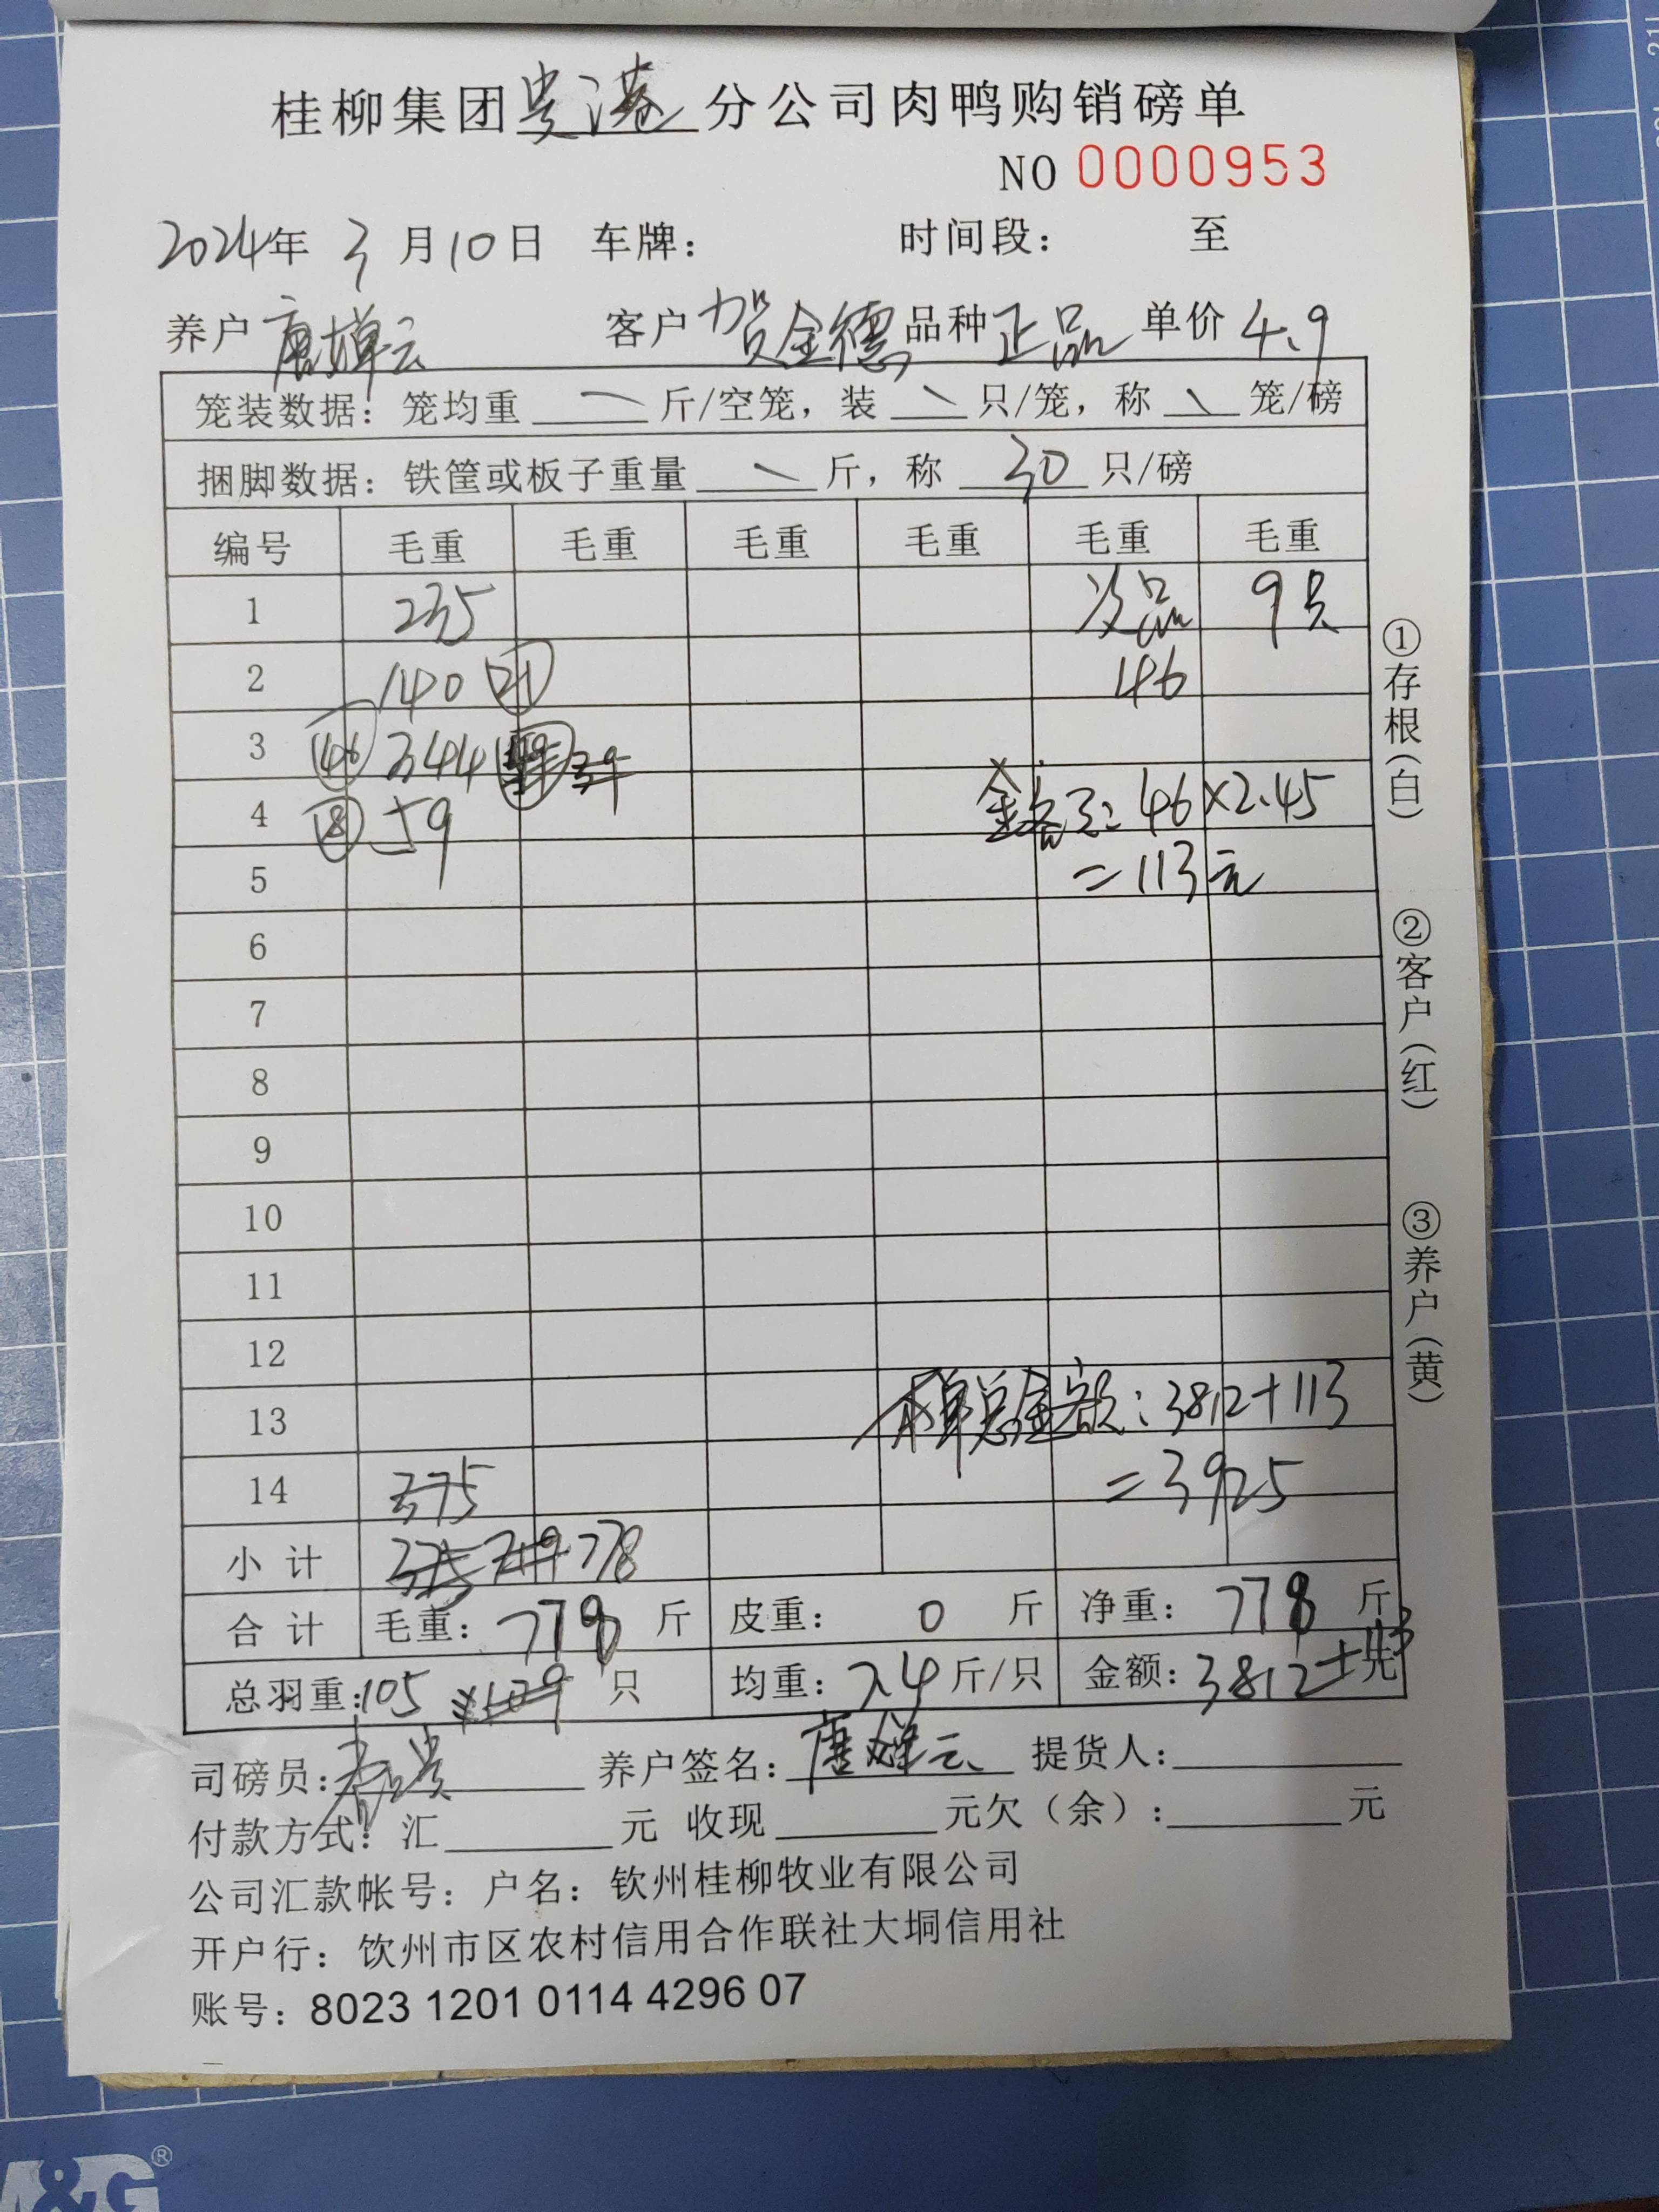 桂柳集团贵港分公司肉鸭购销磅单
NO 0000953
2024年 3月10日 车牌： 时间段： 至
养户 唐婵云 客户 贺金德 品种 正品 单价 4.9
笼装数据：笼均重 斤/空笼，装 只/笼，称 笼/磅
捆脚数据：铁筐或板子重量 斤，称 30 只/磅
编号 毛重 毛重 毛重 毛重 毛重 毛重
1 235 次品 9只
2 140 21 46
3 46 344
4 8 59 金额: 46×2.45
5 =113元
6
7
8
9
10
11
12
13 本单总金额：3812+113
14 375 =3925
小 计 375 719 778
合 计 毛重：778 斤 皮重： 0 斤 净重： 778 斤
总羽重：105 109 只 均重：7.4 斤/只 金额：3812 元 +113
司磅员： 养户签名：唐婵云 提货人：
付款方式：汇 元 收现 元欠（余）： 元
公司汇款帐号：户名：钦州桂柳牧业有限公司
开户行：饮州市区农村信用合作联社大垌信用社
账号：8023 1201 0114 4296 07
①存根（白）
②客户（红）
③养户（黄）
M&G®